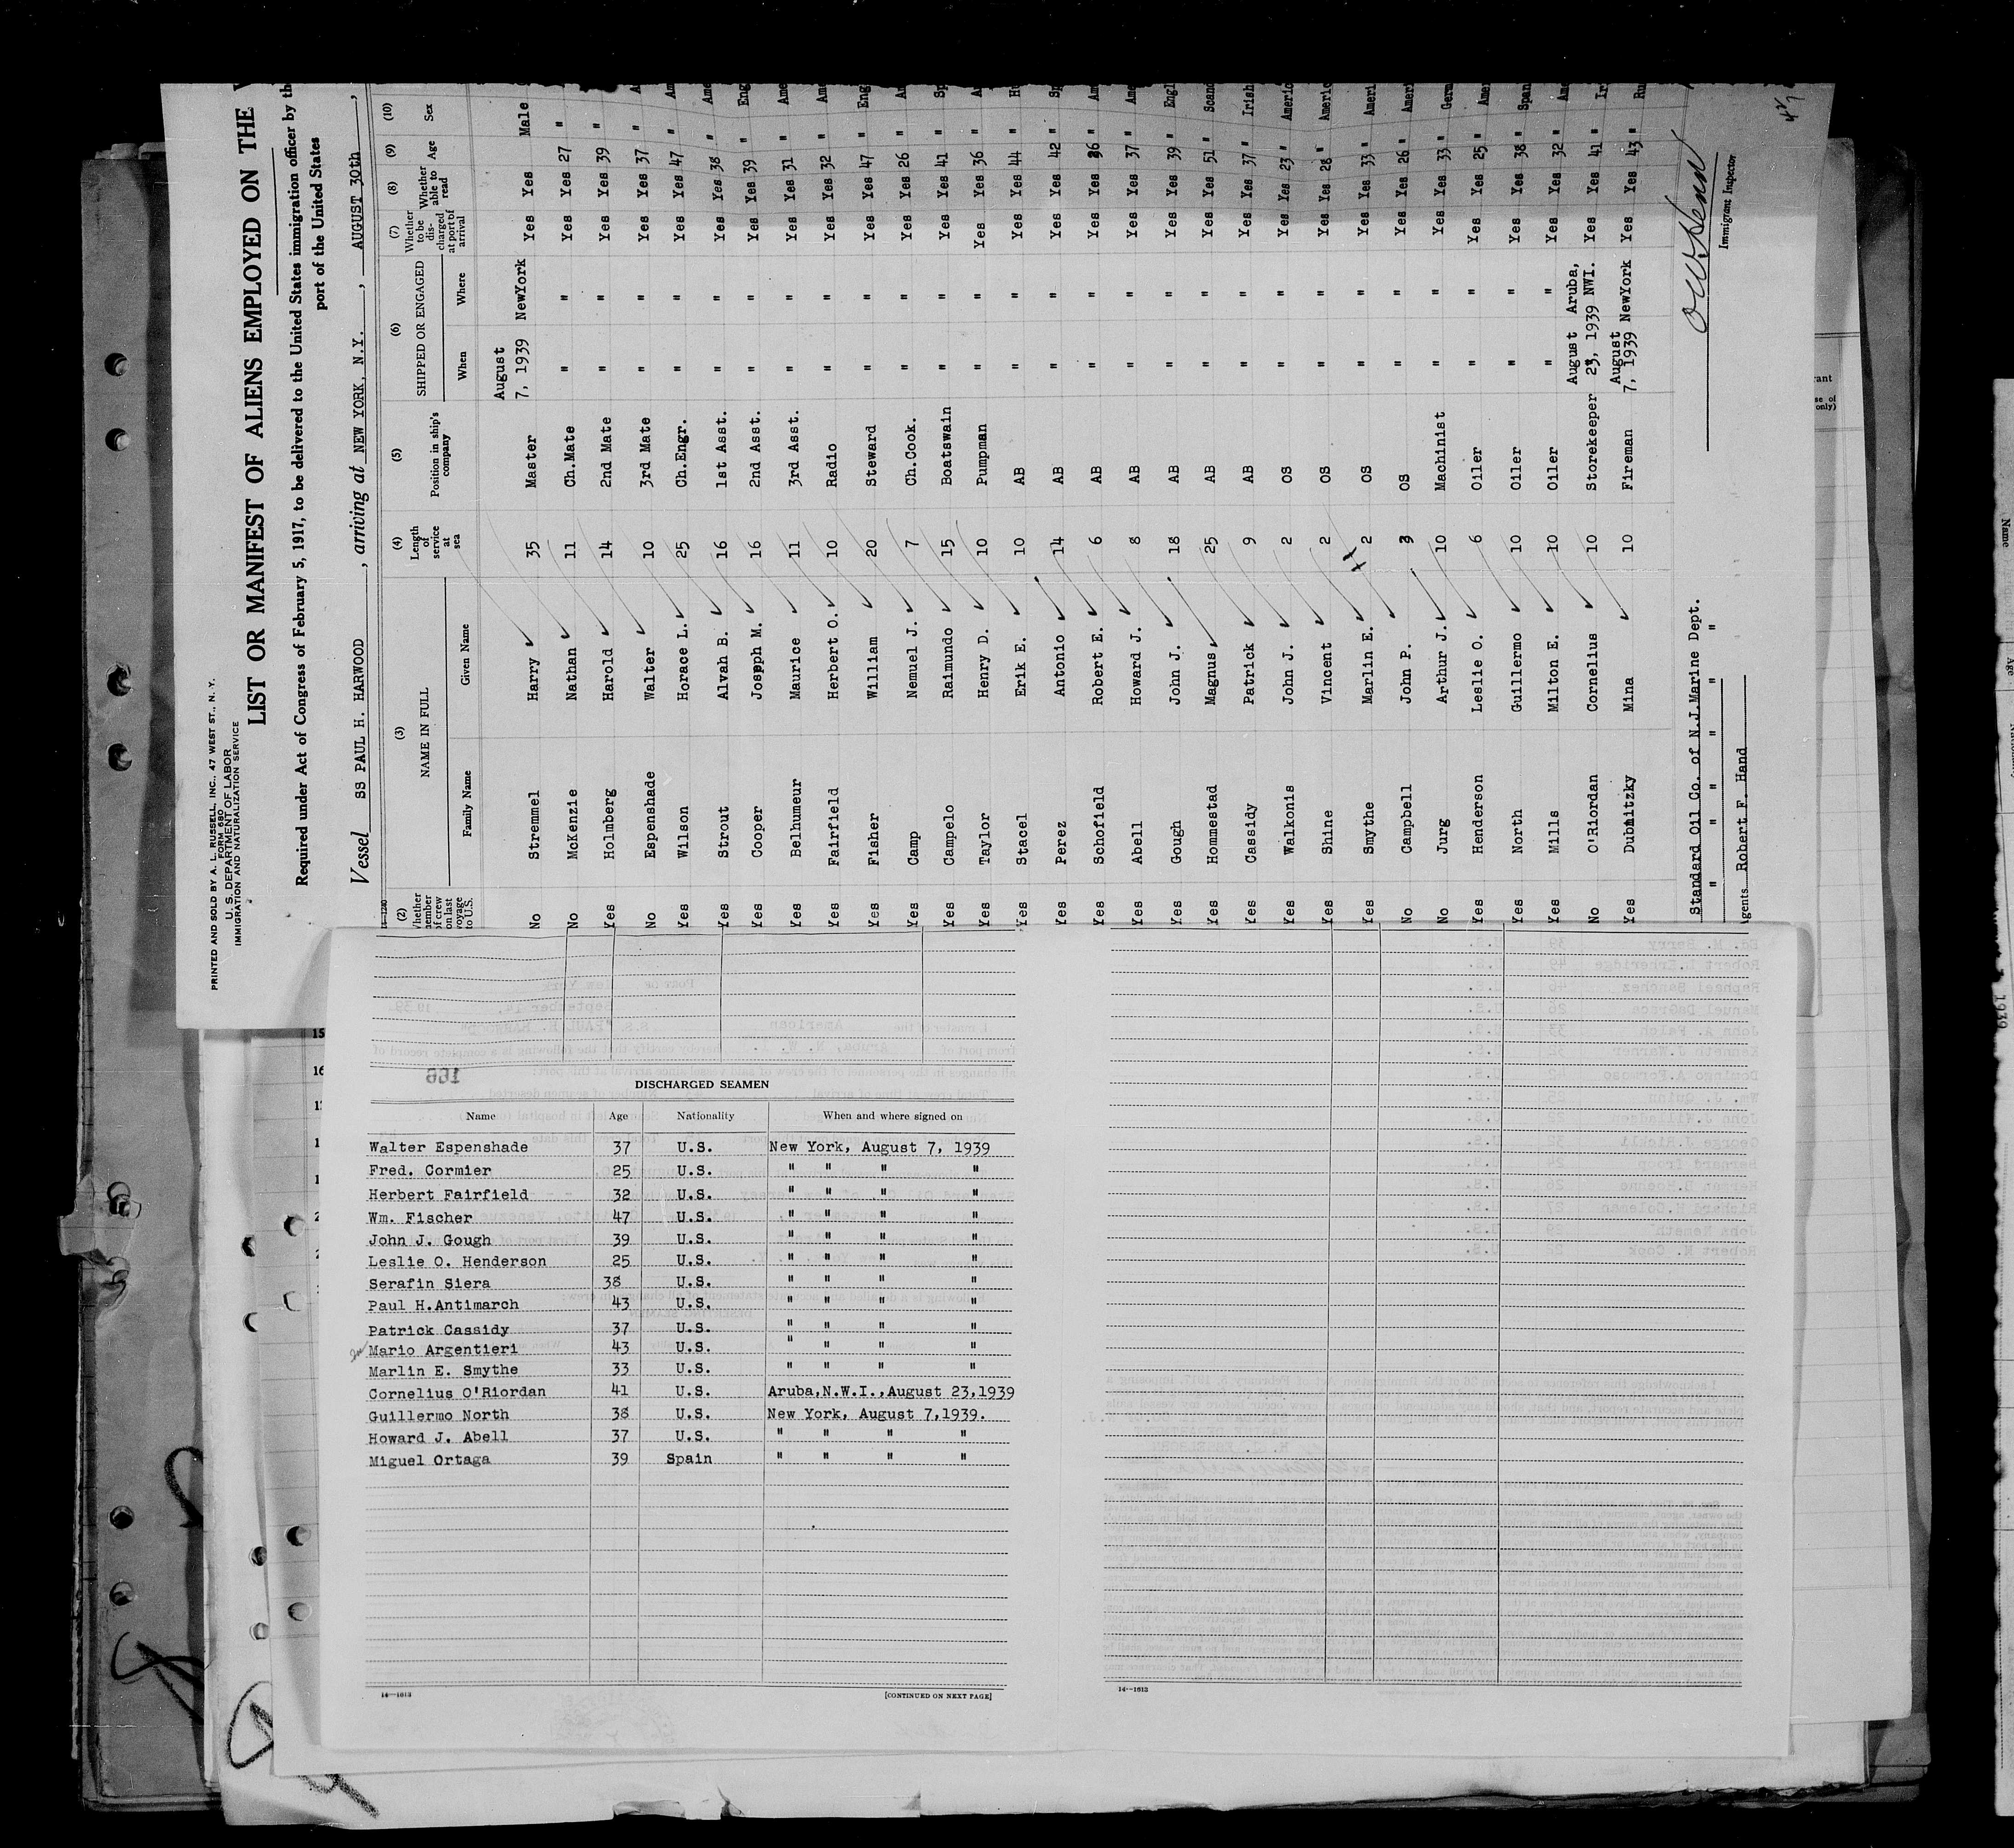 PRINTED AND SOLD BY A. L. RUSSELL, INC., 47 WEST ST., N. Y.
FORM 680
U. S. DEPARTMENT OF LABOR
IMMIGRATION AND NATURALIZATION SERVICE
LIST OR MANIFEST OF ALIENS EMPLOYED ON THE
Required under Act of Congress of February 5, 1917, to be delivered to the United States immigration officer by the
port of the United States
Vessel SS PAUL H. HARWOOD , arriving at NEW YORK, N.Y. , AUGUST 30th ,
(2) Whether member of crew on last voyage to U.S. (3) NAME IN FULL Family Name Given Name (4) Length of service at sea (5) Position in ship's company (6) SHIPPED OR ENGAGED When Where (7) Whether to be discharged at port of arrival (8) Whether able to read (9) Age (10) Sex
No Stremmel Harry 35 Master August 7, 1939 NewYork Yes Yes Male
No McKenzie Nathan 11 Ch.Mate " " Yes Yes 27 "
Yes Holmberg Harold 14 2nd Mate " " Yes Yes 39 "
No Espenshade Walter 10 3rd Mate " " Yes Yes 37 " A
Yes Wilson Horace L. 25 Ch.Engr. " " Yes Yes 47 " Am
Yes Strout Alvah B. 16 1st Asst. " " Yes Yes 38 " Ame
Yes Cooper Joseph M. 16 2nd Asst. " " Yes Yes 39 " Eng
Yes Belhumeur Maurice 11 3rd Asst. " " Yes Yes 31 " Ame
Yes Fairfield Herbert O. 10 Radio " " Yes Yes 32 " Ame
Yes Fisher William 20 Steward " " Yes Yes 47 " Eng
Yes Camp Nemuel J. 7 Ch.Cook. " " Yes Yes 26 " Am
Yes Campelo Raimundo 15 Boatswain " " Yes Yes 41 " Sp
Yes Taylor Henry D. 10 Pumpman " " Yes Yes 36 " Am
Yes Stacel Erik E. 10 AB " " Yes Yes 44 " Hu
Yes Perez Antonio 14 AB " " Yes Yes 42 " Sp
Yes Schofield Robert E. 6 AB " " Yes Yes 26 " Am
Yes Abell Howard J. 8 AB " " Yes Yes 37 " Ame
Yes Gough John J. 18 AB " " Yes Yes 39 " Engl
Yes Hommestad Magnus 25 AB " " Yes Yes 51 " Scand
Yes Cassidy Patrick 9 AB " " Yes Yes 37 " Irish
Yes Walkonis John J. 2 OS " " Yes Yes 23 " Americ
Yes Shine Vincent 2 OS " " Yes Yes 28 " Americ
Yes Smythe Marlin E. 2 OS " " Yes Yes 33 " Ameri
No Campbell John P. 3 OS " " Yes Yes 26 " Ameri
No Jurg Arthur J. 10 Machinist " " Yes Yes 33 " Germ
Yes Henderson Leslie O. 6 Oiler " " Yes Yes 25 " Amer
Yes North Guillermo 10 Oiler " " Yes Yes 38 " Span
Yes Mills Milton E. 10 Oiler " " Yes Yes 32 " Ame
No O'Riordan Cornelius 10 Storekeeper August 23, 1939 Aruba, NWI. Yes Yes 41 " Ir
Yes Dubnitzky Mina 10 Fireman August 7, 1939 NewYork Yes Yes 43 " Ru
Standard Oil Co. of N.J. Marine Dept.
" " " " " "
Agents Robert F. Hand
Immigrant Inspector
DISCHARGED SEAMEN
Name Age Nationality When and where signed on
Walter Espenshade 37 U.S. New York, August 7, 1939
Fred. Cormier 25 U.S. " " " "
Herbert Fairfield 32 U.S. " " " "
Wm. Fischer 47 U.S. " " " "
John J. Gough 39 U.S. " " " "
Leslie O. Henderson 25 U.S. " " " "
Serafin Siera 38 U.S. " " " "
Paul H.Antimarch 43 U.S. " " " "
Patrick Cassidy 37 U.S. " " " "
Mario Argentieri 43 U.S. " " " "
Marlin E. Smythe 33 U.S. " " " "
Cornelius O'Riordan 41 U.S. Aruba,N.W.I.,August 23,1939
Guillermo North 38 U.S. New York, August 7,1939.
Howard J. Abell 37 U.S. " " " "
Miguel Ortaga 39 Spain " " " "
14—1613 [CONTINUED ON NEXT PAGE]
14—1613